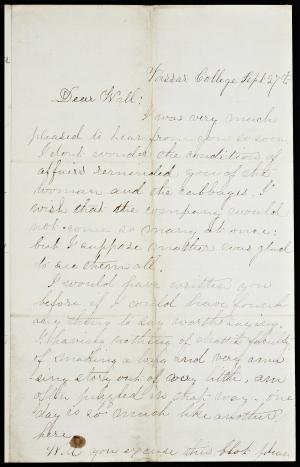 Vassar College Sept 27th
Dear Will:
I was very much
pleased to hear from you so soon
I dont wonder the condition of
affairs reminded you of the
woman and the cabbages. I
wish that the company would
not come so many at once:
but I suppose mother was glad
to see them all.
I would have written you
before if I could have found
any thing to say worth saying.
I having nothing of
of making a long and very amu
sing story out of very little, am
often puzzled in that way. One
day is so much like another
here
Will you excuse this blot please